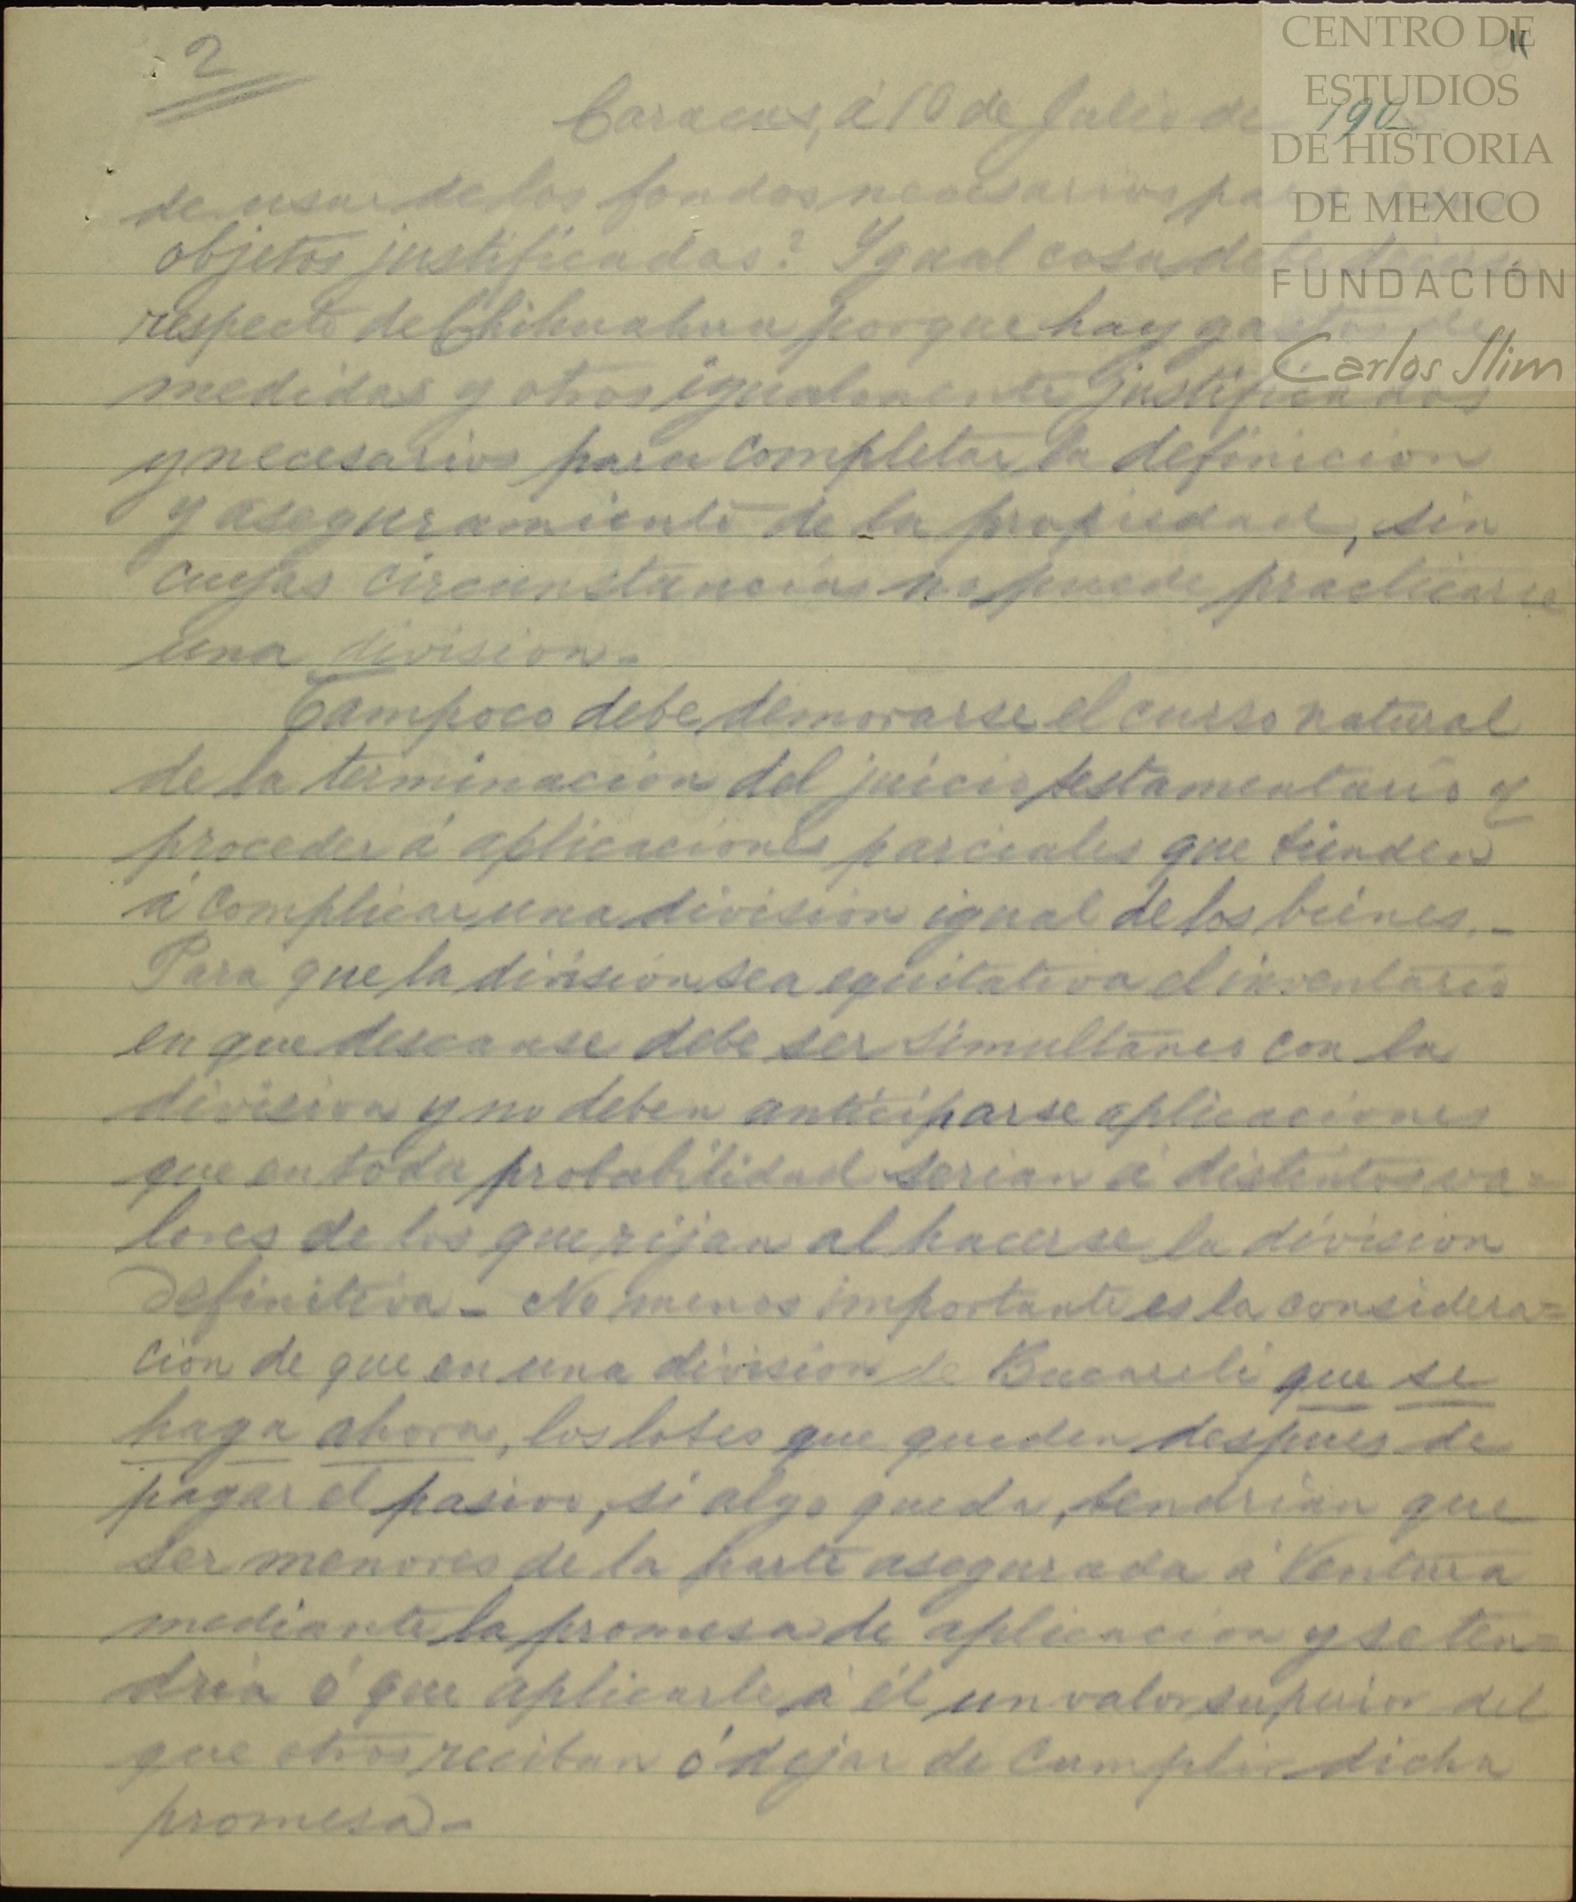 2
Caracas, á 10 de Julio de 190
de usar de los fondos necesarios para
objetos justificados? Ygual cosa debe decirse
respecto de Chihuahua porque hay gastos de
medidas y otros igualmente justificados
y necesarios para completar la definicion
y aseguramiento de la propiedad, sin
cuyas circunstancias no puede practicarse
una division.
Tampoco debe demorarse el curso natural
de la terminacion del juicio testamentario y
proceder á aplicaciones parciales que tienden
á complicar una division igual de los bienes.-
Para que la division sea equitativa el inventario
en que descanse debe ser simultáneo con la
division y no deben anticiparse aplicaciones
que en toda probabilidad serian á distintos va=
lores de los que rijan al hacerse la division
definitiva - No menos importante es la considera=
cion de que en una division de Bucareli que se
haga ahora, los lotes que queden despues de
pagar el pasivo, si algo queda, tendrian que
ser menores de la parte asegurada á Ventura
mediante la promesa de aplicacion y se ten=
dria ó que aplicarle á él un valor superior del
que otros reciban ó dejar de cumplir dicha
promesa-
CENTRO DE
ESTUDIOS
DE HISTORIA
DE MEXICO
FUNDACIÓN
Carlos Slim